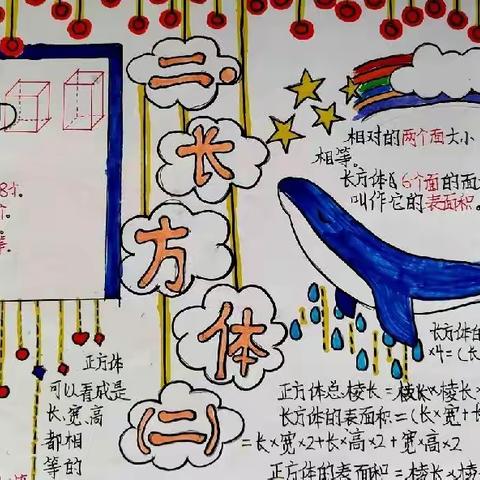 二·
长
方
体
(二)
8个。
个。
等。
相对的两个面大小
相等。
长方体的6个面的面
叫作它的表面积。
长方体的
×4=(长
正方体
可以看成是
长、宽、高
都相
等的
正方体总棱长=棱长×棱长×
长方体的表面积=(长×宽+长
=长×宽×2+长×高×2+宽×高×2
正方体的表面积=棱长×棱